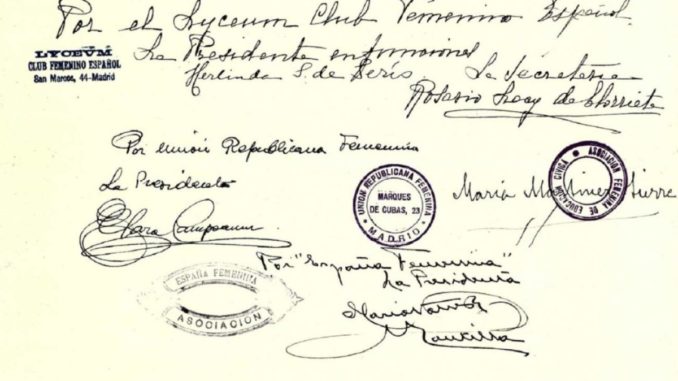 Por el Lyceum Club Femenino Español
La Presidente
LYCEVM
CLUB FEMENINO ESPAÑOL
San Marcos, 44-Madrid
La Secretaria
Rosario
Por unión Republicana Femenina
La Presidenta
Clara Campoamor
UNION REPUBLICANA FEMENINA
MARQUES
DE CUBAS, 23
MADRID
María Martínez Sierra
ASOCIACION FEMENINA DE EDUCACION CIVICA
Por "España Femenina"
La Presidenta
ESPAÑA FEMENINA
ASOCIACIÓN